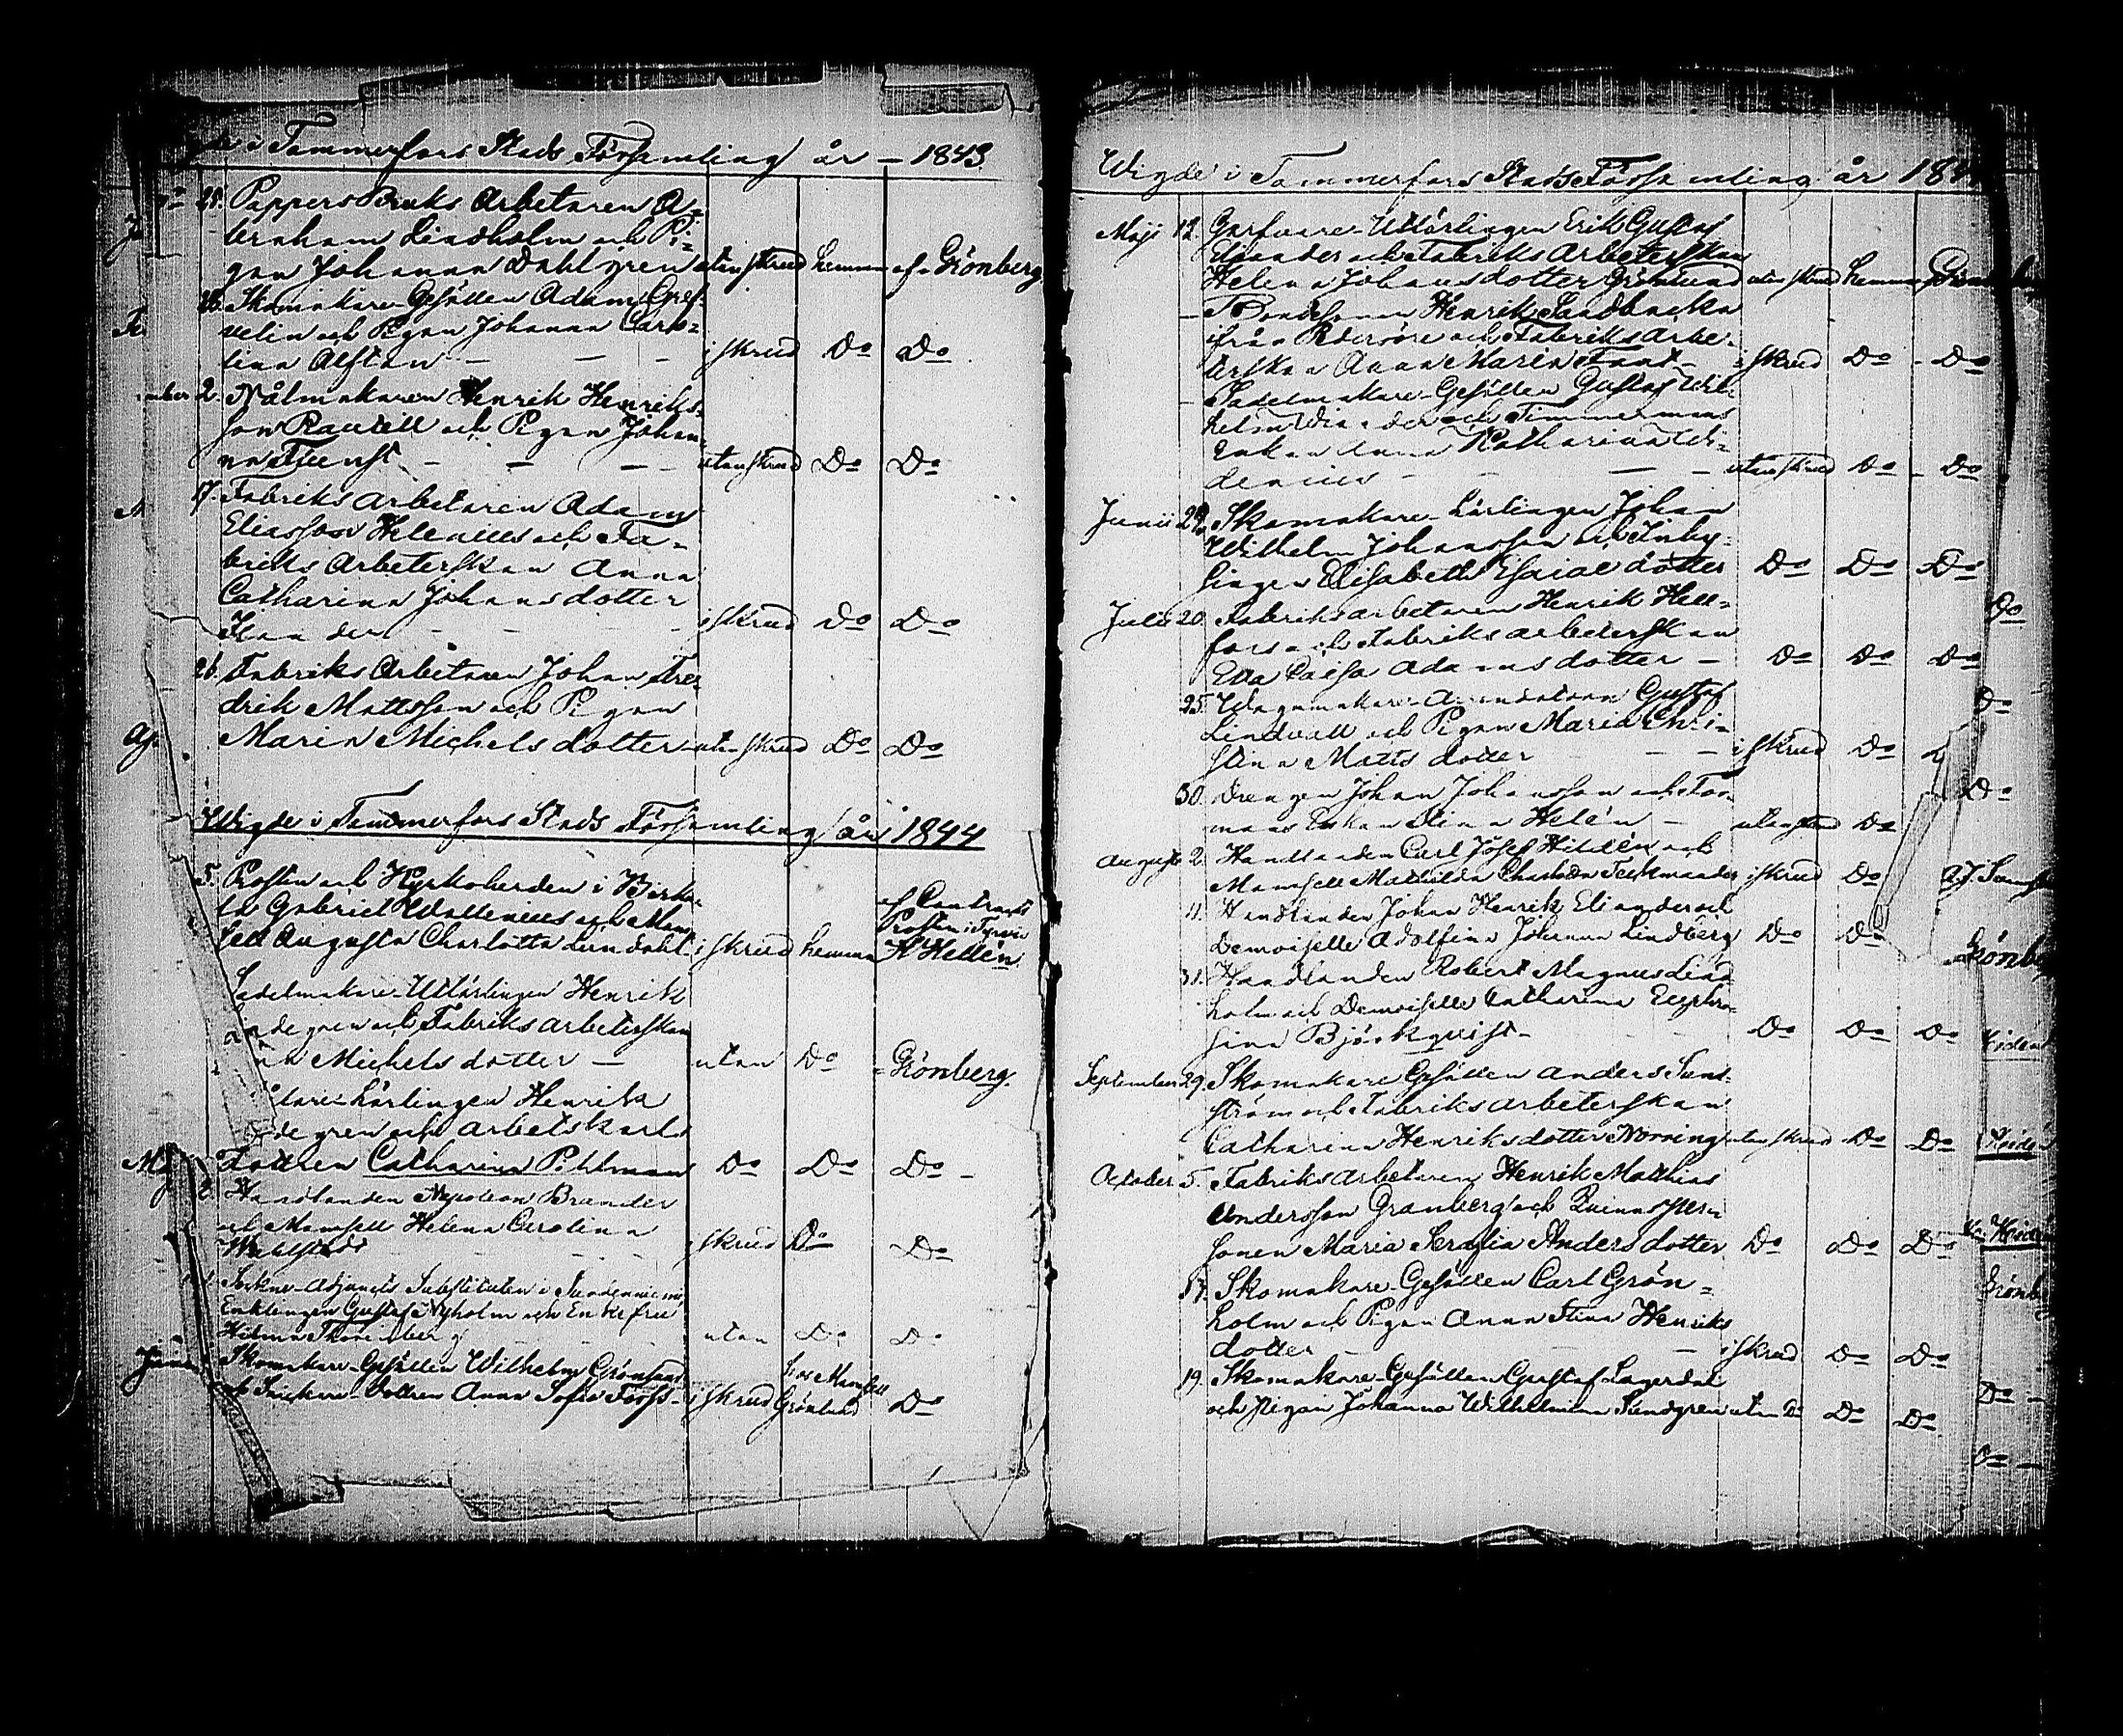 i Tammerfors Stads Församling år – 1843
25. Pappers Bruks Arbetaren A-
braham Lindholm och Pi-
gan Johanna Dahlgren utan skrud hemma af Grönberg
28. Skomakare-Gesällen Adam
velin och Pigan Johanna Caro-
lina Alftan – – – i skrud Do Do
2. Nålmakaren Henrik Henriks-
son Rautell och Pigan Johan-
na – – – utan skrud Do Do
17. Fabriks Arbetaren Adam
Eliasson Helenius och Fa-
briks Arbeterskan Anna
Catharina Johansdotter
– – – i skrud Do Do
26. Fabriks Arbetaren Johan Fre-
drik Mattsson och Pigan
Maria Michelsdotter utan skrud Do Do
Wigde i Tammerfors Stads Församling år 1844
5. Prosten och Kyrkoherden i Birka-
la Gabriel Wallenius och Mam-
sell Augusta Charlotta Lundahl i skrud hemma af Contracts Prosten i H Hellén
Sadelmakare-Utlärlingen Henrik
degren och Fabriks arbeterskan
Michelsdotter – utan Do Grönberg
Lärlingen Henrik
degren och Arbetskarls
Dottren Catharina Pihlman Do Do Do –
Handlanden Napoleon Brander
och Mamsell Helena Carolina
Wahlstedt – – – i skrud Do Do
Sockne-Adjuncts Substituten i
Enklingen Gustaf Nyholm och Enkefru
Hilma utan Do Do
Skomakare-Gesällen Wilhelm Grönlund
och Snickare-Dottren Anna Sofia Forss – i skrud hos Mamsell Grönlund Do
Wigde i Tammerfors Stads Församling år 184
Maji 12. Garfvare-Utlärlingen Erik Gustaf
Elgander och Fabriks Arbeterskan
Helena Johansdotter Grönlund utan skrud hemma
– Bondsonen Henrik Sandbacka
ifrån Pedersöre och Fabriks Arbe-
terskan Anna Maria – i skrud Do – Do
– Sadelmakare-Gesällen Gustaf Wil-
helm och Timmermans
Enkan Anna Katharina Wi-
denius – – – utan skrud Do – Do
Junii 29. Skomakare-Lärlingen Johan
Wilhelm Johansson och Inhy-
singen Elisabeth Esaiaedotter Do Do Do
Julii 20. Fabriks arbetaren Henrik Hell-
fors och Fabriks arbeterskan
Eva Caisa Adamsdotter – Do Do Do
25. Wagnmakare Arrendatorn Gustaf
Lindvall och Pigan Maria Chri-
stina Mattsdotter – – i skrud Do
30. Drengen Johan Johansson och Tor-
pare Enkan Stina Helén – utan skrud Do
Augusti 2. Handlanden Carl Josef Hildén och
Mamsell Mathilda Charlotta Teckmander i skrud Do
11. Handlanden Johan Henrik Eliander och
Demoiselle Adolfina Johanna Lindberg Do Do
31. Handlanden Robert Magnus Lind-
holm och Demoiselle Catharina Euphro-
sina Björkqvist – Do Do Do
September 29. Skomakare Gesällen Anders Sund-
ström och Fabriks arbeterskan
Catharina Henriksdotter Norring utan skrud Do Do
October 5. Fabriks Arbetaren Henrik Mathias
Andersson Granberg och Qvinnsper-
sonen Maria Serafia Andersdotter Do Do Do
17. Skomakare-Gesällen Carl Grön-
holm och Pigan Anna Stina Henriks
dotter – – – i skrud Do Do
19. Skomakare-Gesällen Gustaf Lagerdal
och Pigan Johanna Wilhelmina Sundgren utan Do Do Do